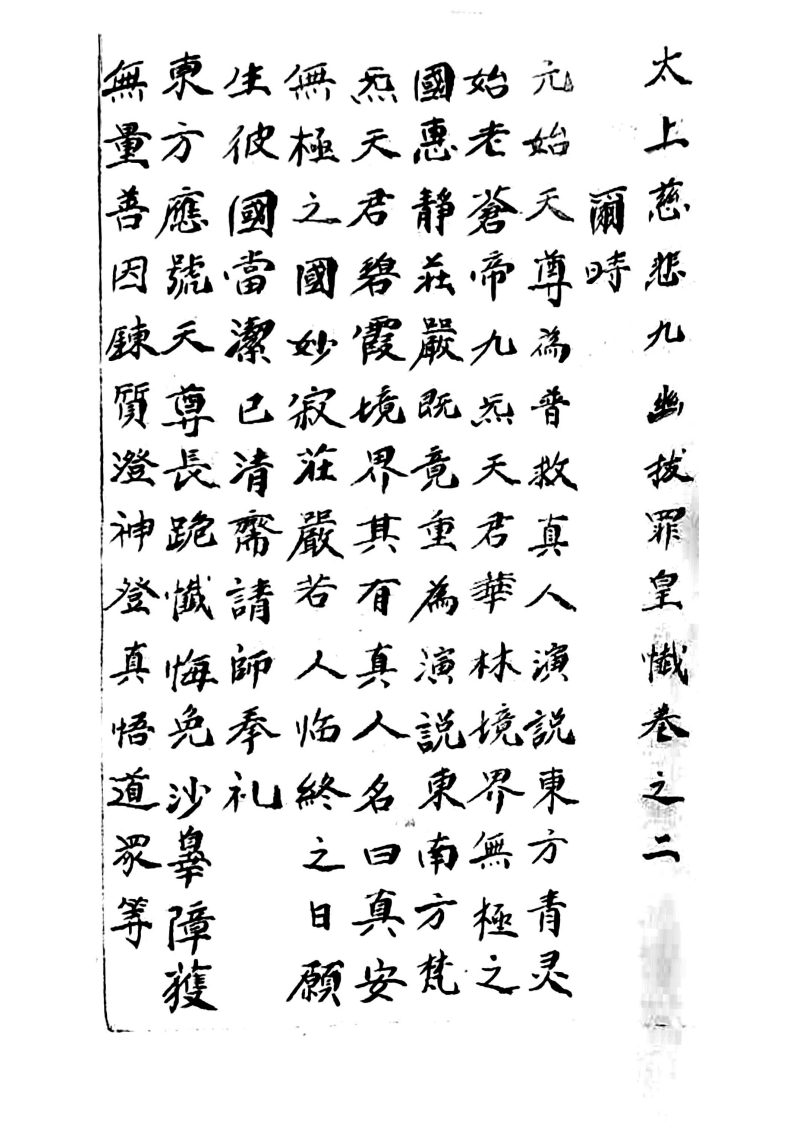 太上慈悲九幽拔罪皇懺卷之二
爾時
元始天尊為普救真人演説東方青灵
始老蒼帝九炁天君華林境界無極之
國惠靜莊嚴既竟重為演説東南方梵
炁天君碧霞境界其有真人名曰真安
無極之國妙寂莊嚴若人临終之日願
生彼國當潔已清齋請師奉礼
東方應號天尊長跪懺悔免沙辠障獲
無量善因鍊質澄神登真悟道眾等